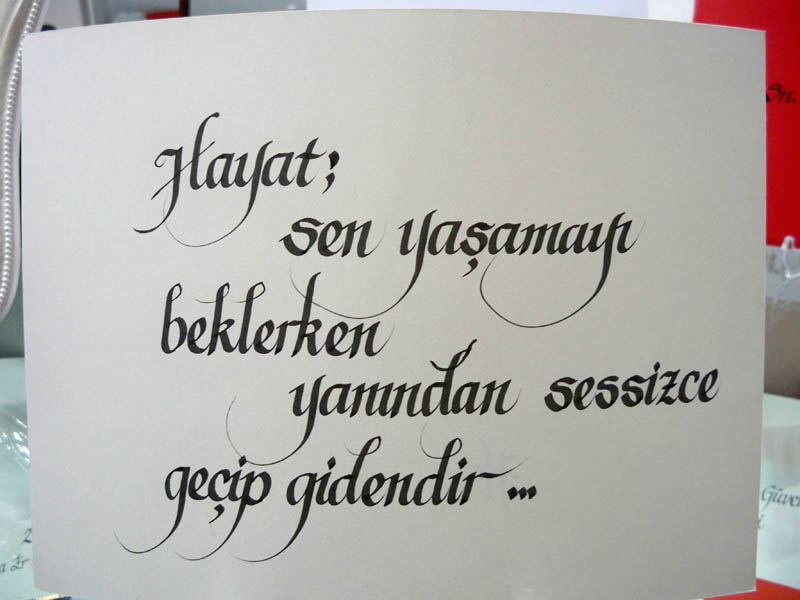 Hayat;
sen yaşamayı
beklerken
yanından sessizce
geçip gidendir...
Sn.
Güven